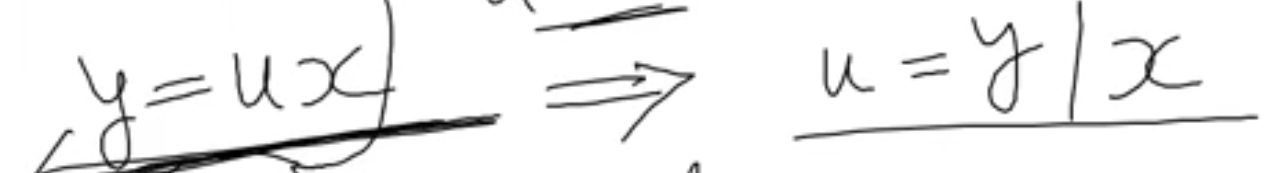 y = ux ⇒ u = y/x